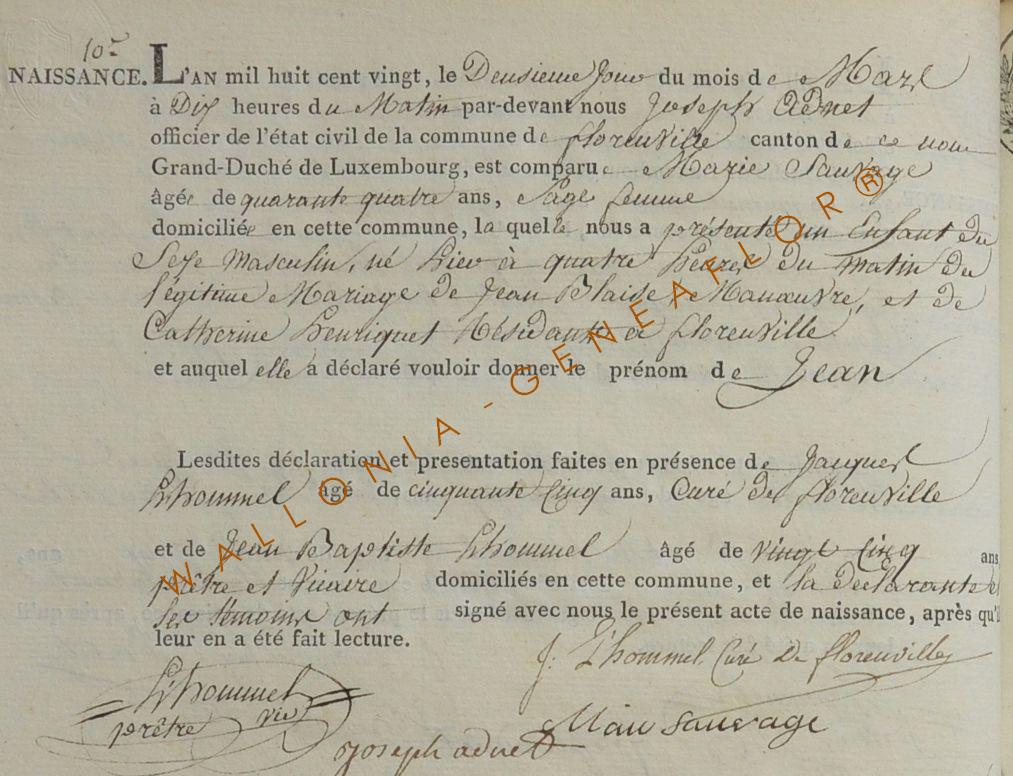 10e
NAISSANCE. L'AN mil huit cent vingt, le Deusieme Jour du mois de Mars
à Dix heures du Matin par-devant nous Joseph Adnet
officier de l'état civil de la commune de florenville canton de ce nom
Grand-Duché de Luxembourg, est comparue Marie Sauvage
âgée de quarante quatre ans, Sage femme
domiciliée en cette commune, la quelle nous a présenté un Enfant du
Sexe Masculin, né hier à quatre heures du matin du
légitime Mariage de Jean Blaise Manœuvre, et de
Catherine Henriquet Résidants à florenville
et auquel elle a déclaré vouloir donner le prénom de Jean
Lesdites déclaration et presentation faites en présence de Jacques
Lhommel âgé de cinquante Cinq ans, Curé de florenville
et de Jean Baptiste Lhommel âgé de vingt cinq ans
prêtre et Vicaire domiciliés en cette commune, et la declarante et
les temoins ont signé avec nous le présent acte de naissance, après qu'il
leur en a été fait lecture.
J: L'hommel Curé De florenville
Lhommel
prêtre vic
Marie sauvage
joseph adnet
WALLONIA - GENEAFLOR ®